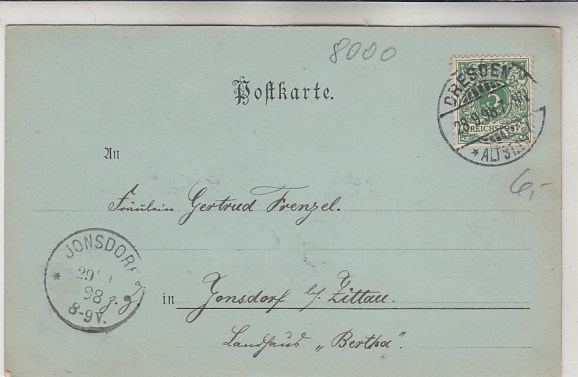 8000
Postkarte.
DRESDEN
28.9.98.7
* ALTST.
REICHSPOST
An
6,-
Fräulein Gertrud Frenzel.
JONSDORF
*
29
98
8-9V.
z. Z. in Jonsdorf b/ Zittau.
Landhaus „Bertha".